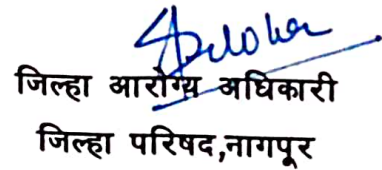 जिल्हा आरोग्य अधिकारी
जिल्हा परिषद,नागपूर